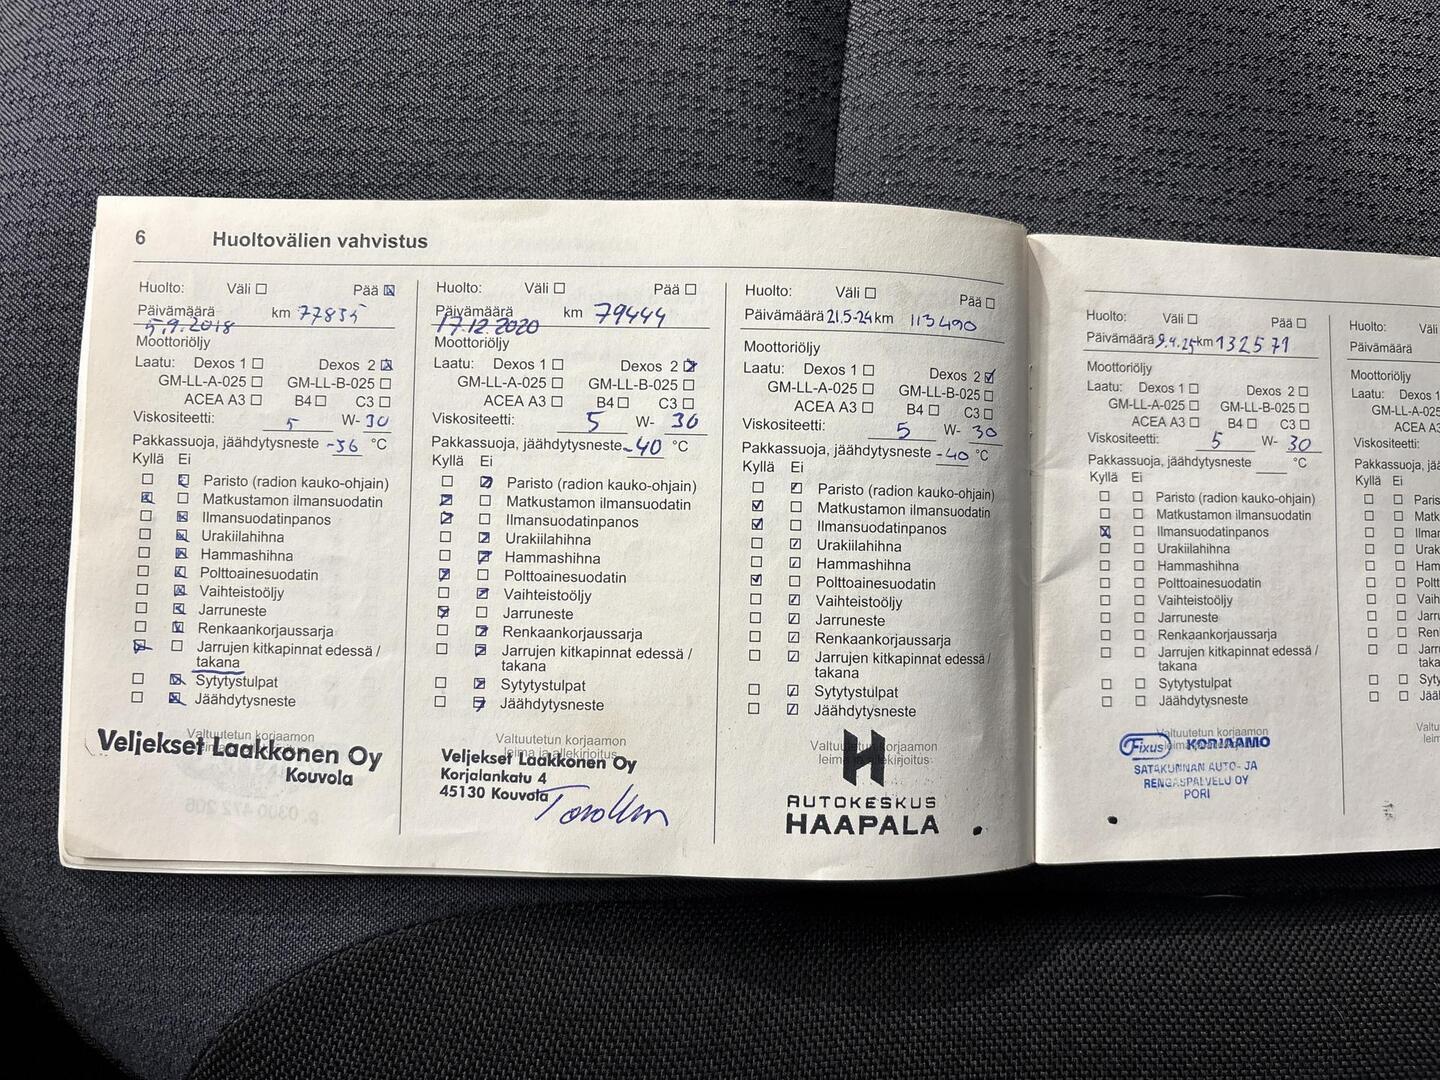 6 Huoltovälien vahvistus
Huolto: Väli ☐ Pää ☒
Päivämäärä km 77835
5.9.2018
Moottoriöljy
Laatu: Dexos 1 ☐ Dexos 2 ☒
GM-LL-A-025 ☐ GM-LL-B-025 ☐
ACEA A3 ☐ B4 ☐ C3 ☐
Viskositeetti: 5 W- 30
Pakkassuoja, jäähdytysneste -36 °C
Kyllä Ei
☐ ☒ Paristo (radion kauko-ohjain)
☒ ☐ Matkustamon ilmansuodatin
☐ ☒ Ilmansuodatinpanos
☐ ☒ Urakiilahihna
☐ ☒ Hammashihna
☐ ☒ Polttoainesuodatin
☐ ☒ Vaihteistoöljy
☐ ☒ Jarruneste
☐ ☒ Renkaankorjaussarja
☒ ☐ Jarrujen kitkapinnat edessä /
takana
☐ ☒ Sytytystulpat
☐ ☒ Jäähdytysneste
Valtuutetun korjaamon
leima ja allekirjoitus
Veljekset Laakkonen Oy
Kouvola
p. 0300 472 206
Huolto: Väli ☐ Pää ☐
Päivämäärä km 79444
17.12.2020
Moottoriöljy
Laatu: Dexos 1 ☐ Dexos 2 ☒
GM-LL-A-025 ☐ GM-LL-B-025 ☐
ACEA A3 ☐ B4 ☐ C3 ☐
Viskositeetti: 5 W- 30
Pakkassuoja, jäähdytysneste -40 °C
Kyllä Ei
☐ ☒ Paristo (radion kauko-ohjain)
☒ ☐ Matkustamon ilmansuodatin
☒ ☐ Ilmansuodatinpanos
☐ ☒ Urakiilahihna
☐ ☒ Hammashihna
☒ ☐ Polttoainesuodatin
☐ ☒ Vaihteistoöljy
☒ ☐ Jarruneste
☐ ☒ Renkaankorjaussarja
☐ ☒ Jarrujen kitkapinnat edessä /
takana
☐ ☒ Sytytystulpat
☐ ☒ Jäähdytysneste
Valtuutetun korjaamon
leima ja allekirjoitus
Veljekset Laakkonen Oy
Korjalankatu 4
45130 Kouvola
Huolto: Väli ☐ Pää ☐
Päivämäärä 21.5-24 km 113490
Moottoriöljy
Laatu: Dexos 1 ☐ Dexos 2 ☑
GM-LL-A-025 ☐ GM-LL-B-025 ☐
ACEA A3 ☐ B4 ☐ C3 ☐
Viskositeetti: 5 W- 30
Pakkassuoja, jäähdytysneste -40 °C
Kyllä Ei
☐ ☑ Paristo (radion kauko-ohjain)
☑ ☐ Matkustamon ilmansuodatin
☑ ☐ Ilmansuodatinpanos
☐ ☑ Urakiilahihna
☐ ☑ Hammashihna
☑ ☐ Polttoainesuodatin
☐ ☑ Vaihteistoöljy
☐ ☑ Jarruneste
☐ ☑ Renkaankorjaussarja
☐ ☑ Jarrujen kitkapinnat edessä /
takana
☐ ☑ Sytytystulpat
☐ ☑ Jäähdytysneste
Valtuutetun korjaamon
leima ja allekirjoitus
H
AUTOKESKUS
HAAPALA
Huolto: Väli ☐ Pää ☐
Päivämäärä 9.4.25 km 132571
Moottoriöljy
Laatu: Dexos 1 ☐ Dexos 2 ☐
GM-LL-A-025 ☐ GM-LL-B-025 ☐
ACEA A3 ☐ B4 ☐ C3 ☐
Viskositeetti: 5 W- 30
Pakkassuoja, jäähdytysneste °C
Kyllä Ei
☐ ☐ Paristo (radion kauko-ohjain)
☐ ☐ Matkustamon ilmansuodatin
☒ ☐ Ilmansuodatinpanos
☐ ☐ Urakiilahihna
☐ ☐ Hammashihna
☐ ☐ Polttoainesuodatin
☐ ☐ Vaihteistoöljy
☐ ☐ Jarruneste
☐ ☐ Renkaankorjaussarja
☐ ☐ Jarrujen kitkapinnat edessä /
takana
☐ ☐ Sytytystulpat
☐ ☐ Jäähdytysneste
Valtuutetun korjaamon
leima ja allekirjoitus
Fixus KORJAAMO
SATAKUNNAN AUTO- JA
RENGASPALVELU OY
PORI
Huolto: Väli
Päivämäärä
Moottoriöljy
Laatu: Dexos 1
GM-LL-A-025
ACEA A3
Viskositeetti:
Pakkassuoja, jää
Kyllä Ei
☐ ☐ Paris
☐ ☐ Matk
☐ ☐ Ilman
☐ ☐ Urak
☐ ☐ Hamm
☐ ☐ Poltt
☐ ☐ Vaih
☐ ☐ Jarru
☐ ☐ Ren
☐ ☐ Jarru
taka
☐ ☐ Syty
☐ ☐ Jääh
Valt
leim